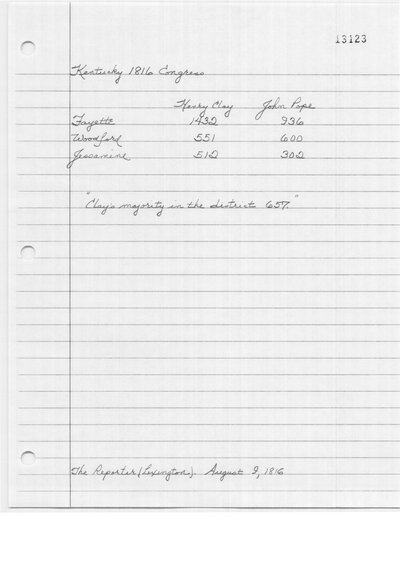 13123
Kentucky 1816 Congress
Henry Clay John Pope
Fayette 1432 936
Woodford 551 600
Jessamine 512 302
"Clay's majority in the district 657."
The Reporter (Lexington). August 9, 1816